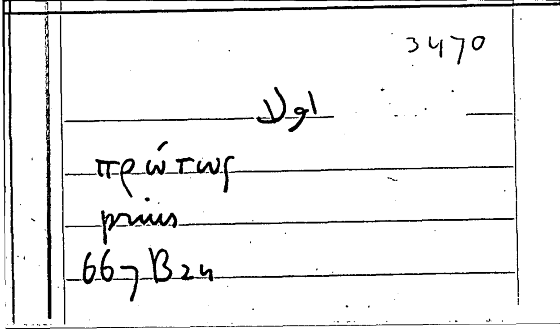 3470
اولا
πρώτως
prius
667 B 24